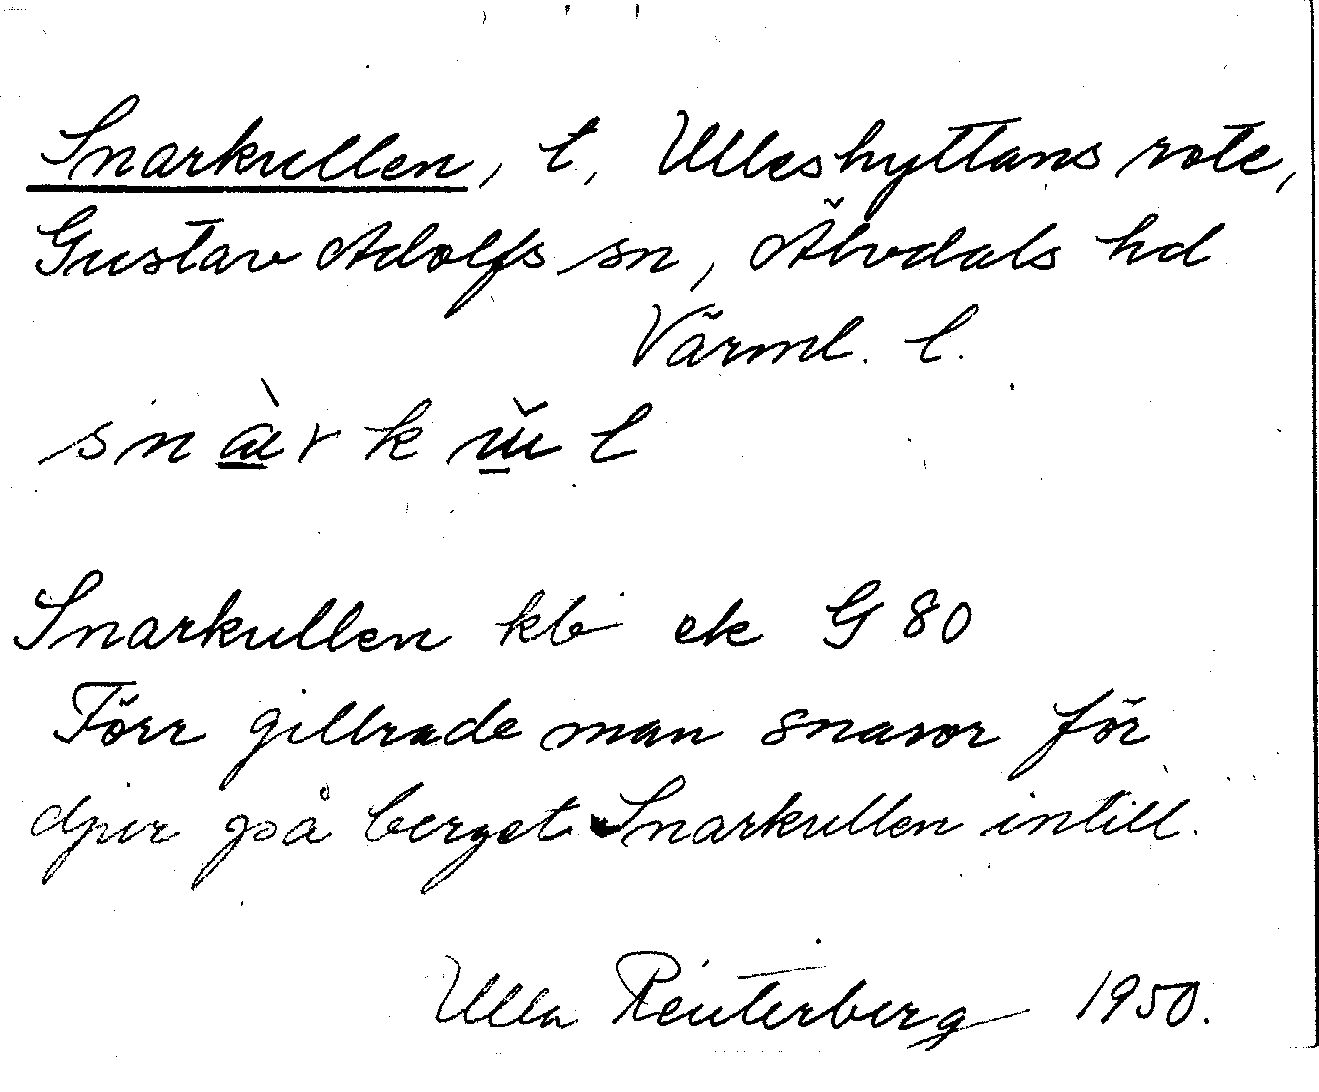 Snarkullen, t, Ulleshyttans rote,
Gustav Adolfs sn, Älvdals hd
Värml. l.
Snarkullen kb ek G 80
Förr gillrade man snaror för
djur på berget Snarkullen intill.
Ulla Reuterberg 1950.